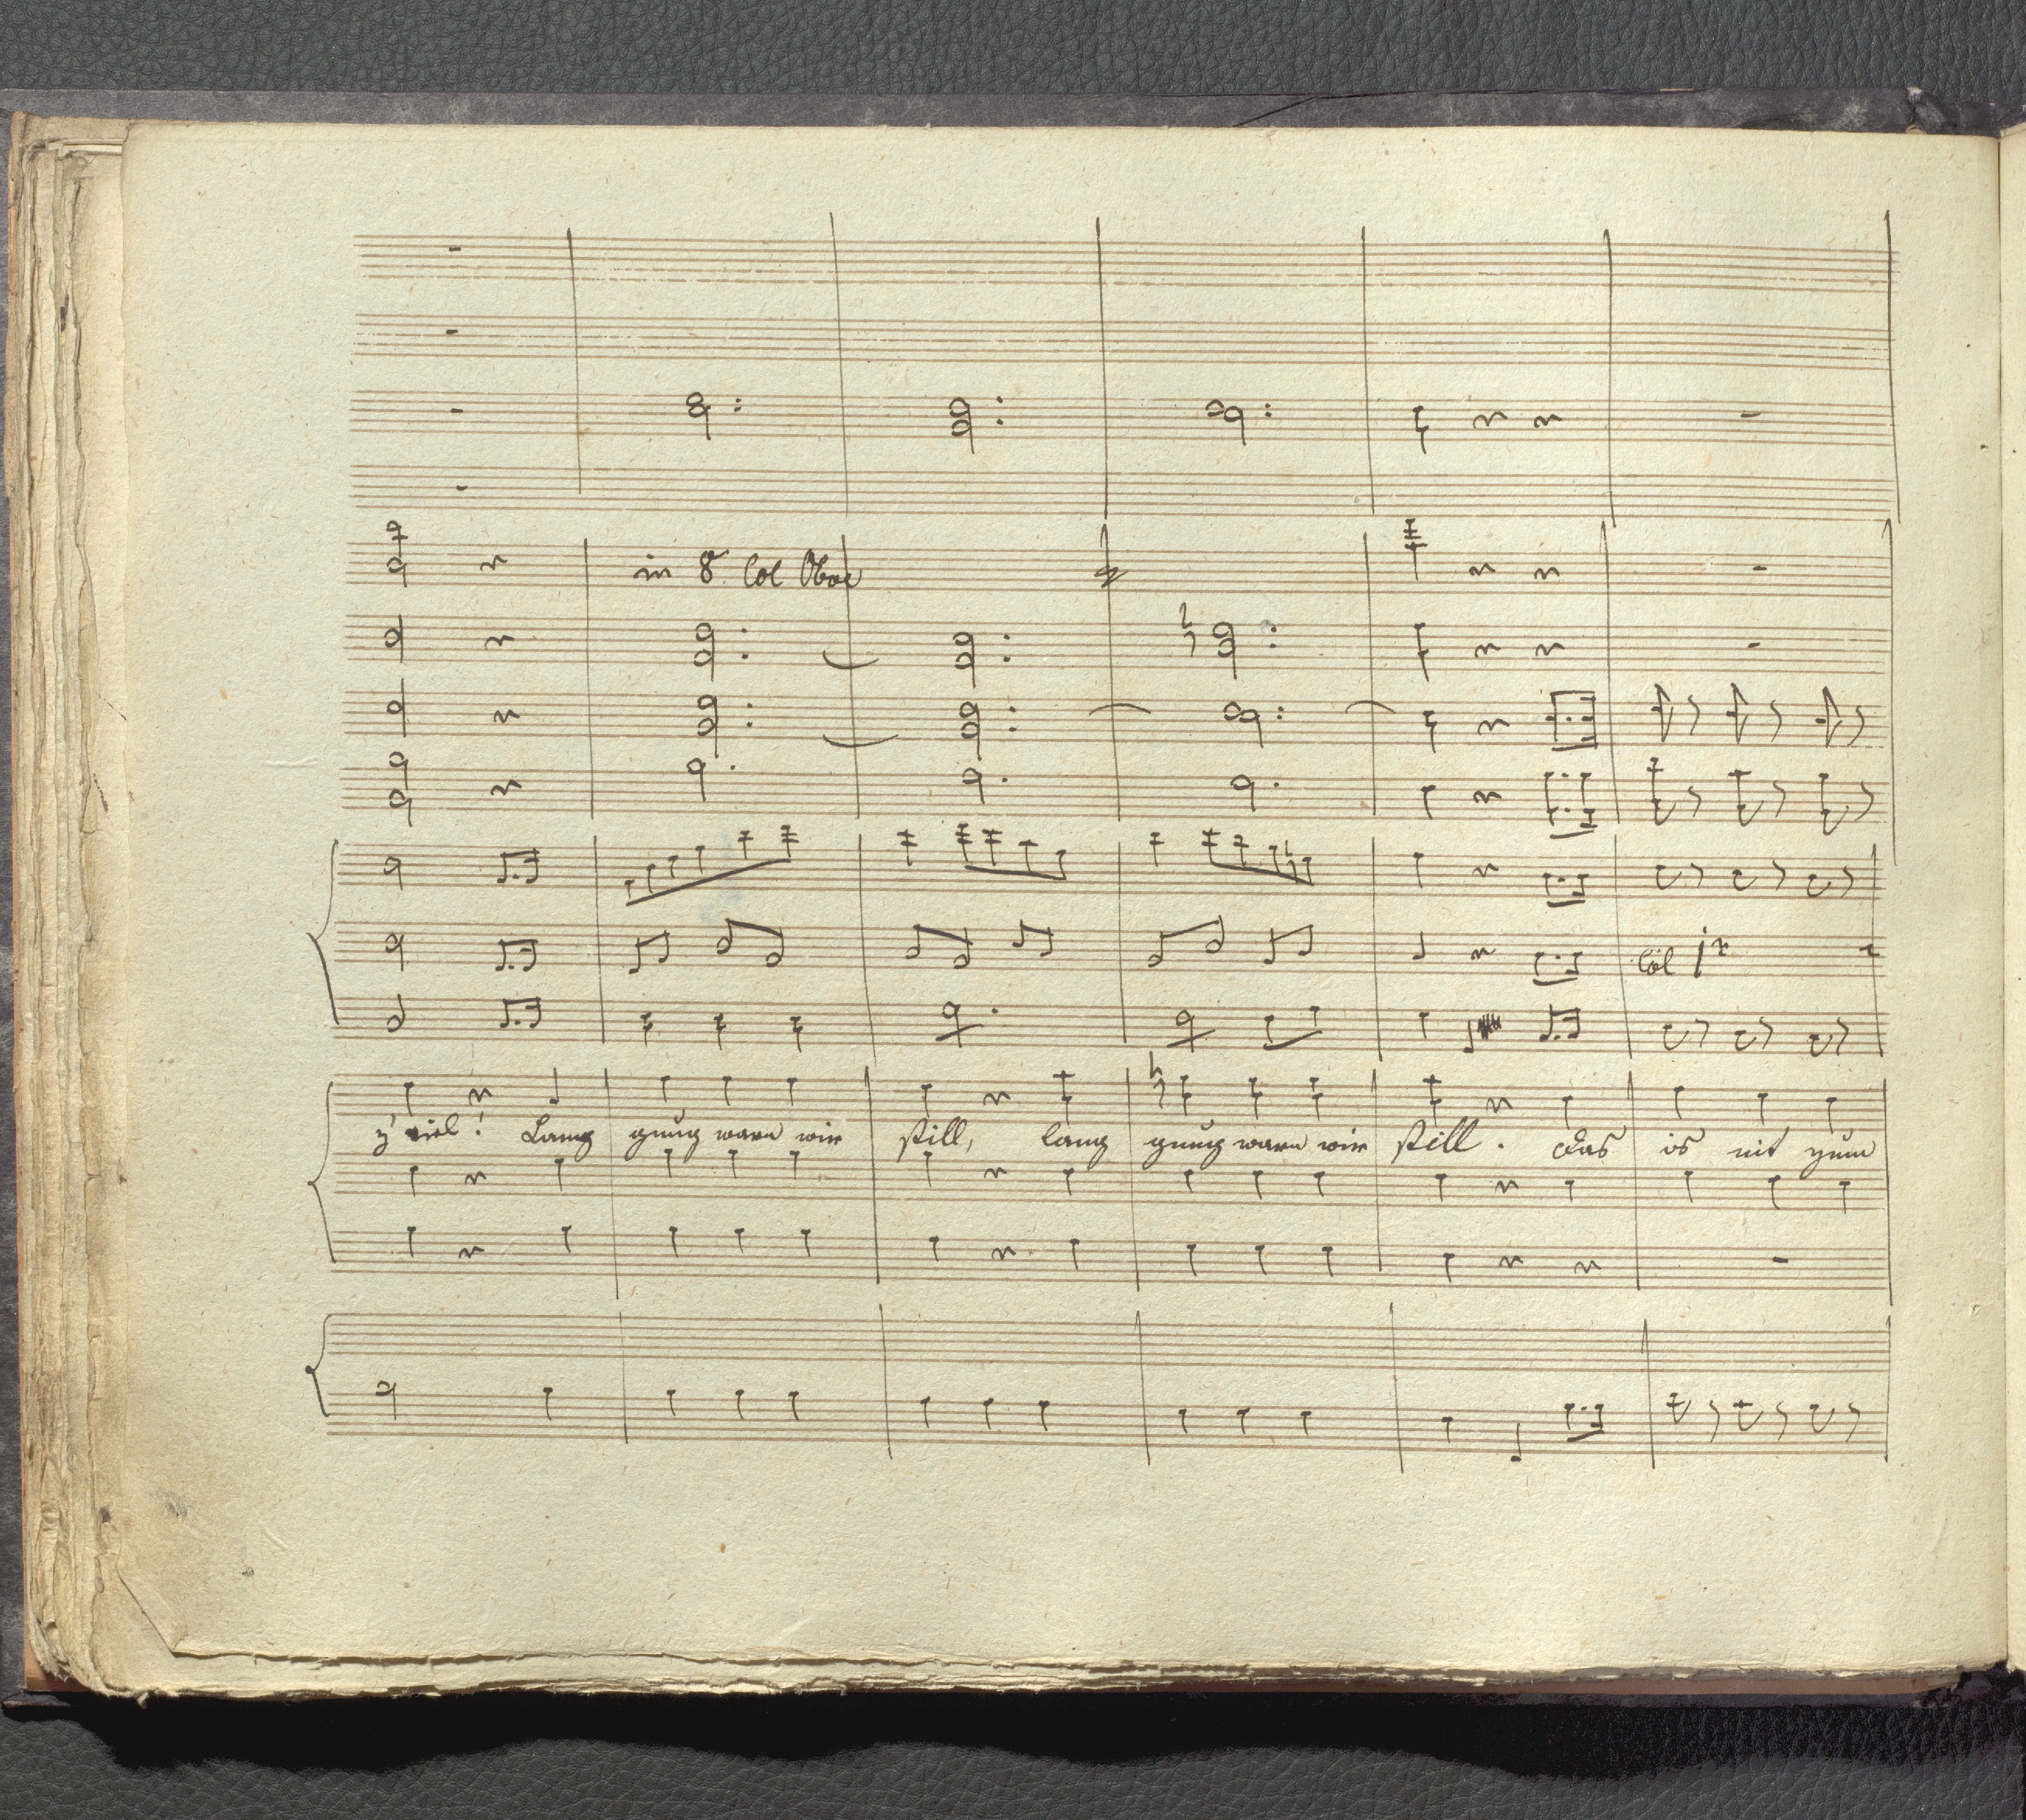 in 8va Col Oboe
Col 1mo
z' viel! Lang gnug waren wir still, lang gnug waren wir still. Das is nit zum